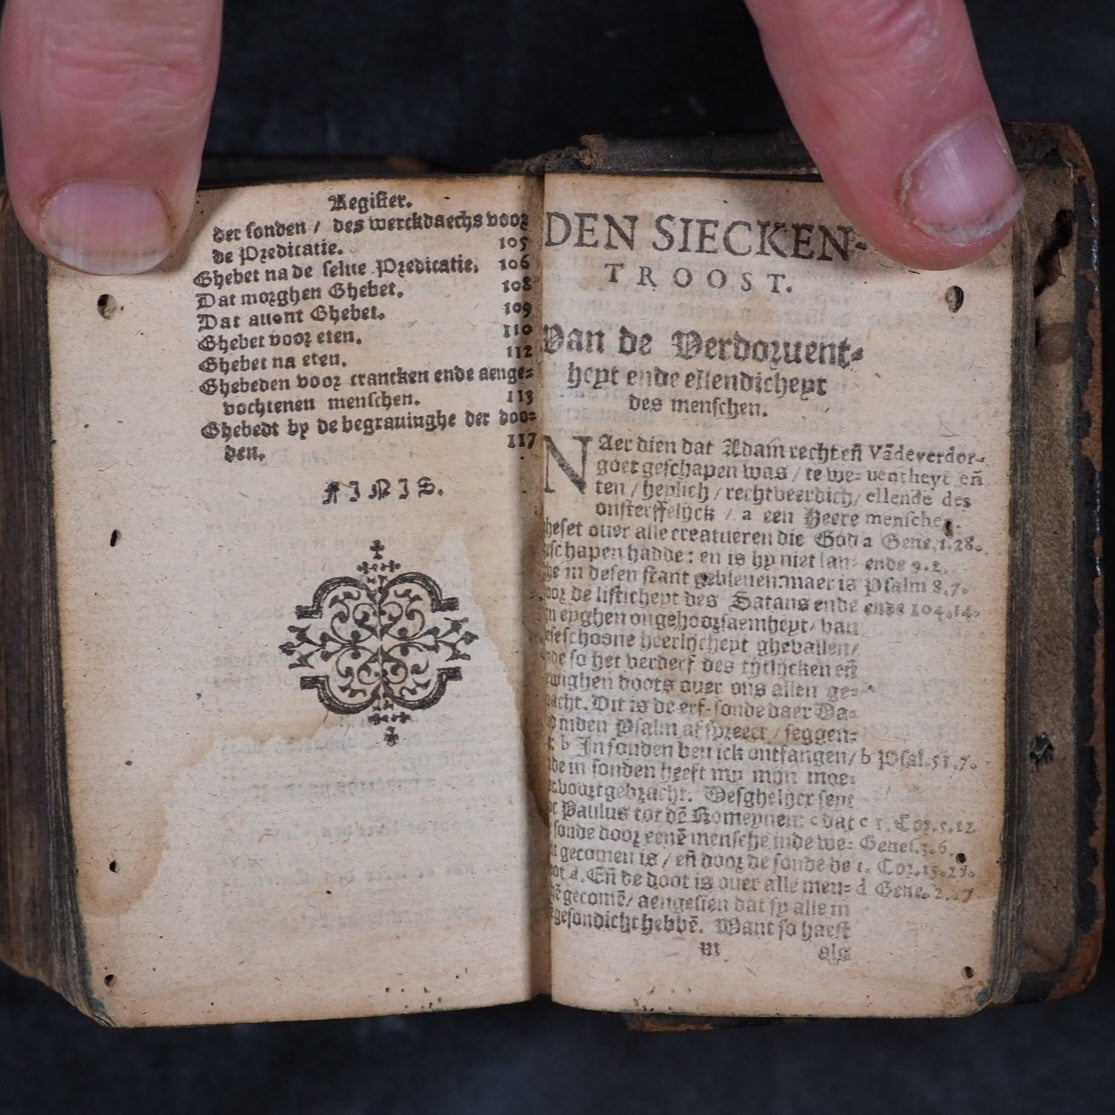 Register.
der sonden / des werckdaechs voor
de Predicatie. 105
Ghebet na de selue Predicatie. 106
Dat morghen Ghebet. 108
Dat auont Ghebet. 109
Ghebet voor eten. 110
Ghebet na eten. 112
Ghebeden voor crancken ende aenge-
vochtenen menschen. 113
Ghebedt by de begrauinghe der doo-
den. 117
FINIS.
DEN SIECKEN-
TROOST.
Van de Verdoruent-
heyt ende ellendicheyt
des menschen.
NAer dien dat Adam recht eñ
goet geschapen was / te we-
ten / heylich / rechtveerdich /
onsterffelijck / a een Heere
geset ouer alle creatueren die God
geschapen hadde: en is hy niet lan-
in desen stant gebleuen: maer is
de listicheyt des Satans ende
eyghen ongehoorsaemheyt / van
heerlijcheyt gheuallen /
so het verderf des tijtlijcken eñ
doots ouer ons allen ge-
Dit is de erf-sonde daer Da-
inden Psalm af spreect / seggen-
b In sonden ben ick ontfangen /
in sonden heeft my mijn moe-
voort gebracht. Desghelijcx seyt
Paulus tot dē Romeynen: c dat
sonde door eenē mensche inde we-
gecomen is / eñ door de sonde de
d. Eñ de doot is ouer alle men-
gecomē / aengesien dat sy alle in
gesondicht hebbē. Want so haest
m als
Vādeverdor-
uentheyt eñ
ellende des
menschen.
a Gene.1.28.
ende 9.2.
Psalm 8.7.
ende 104.14.
b Psal.51.7.
c 1. Cor.5.12
Genes.3.6.
1. Cor.15.21.
d Gene.2.17